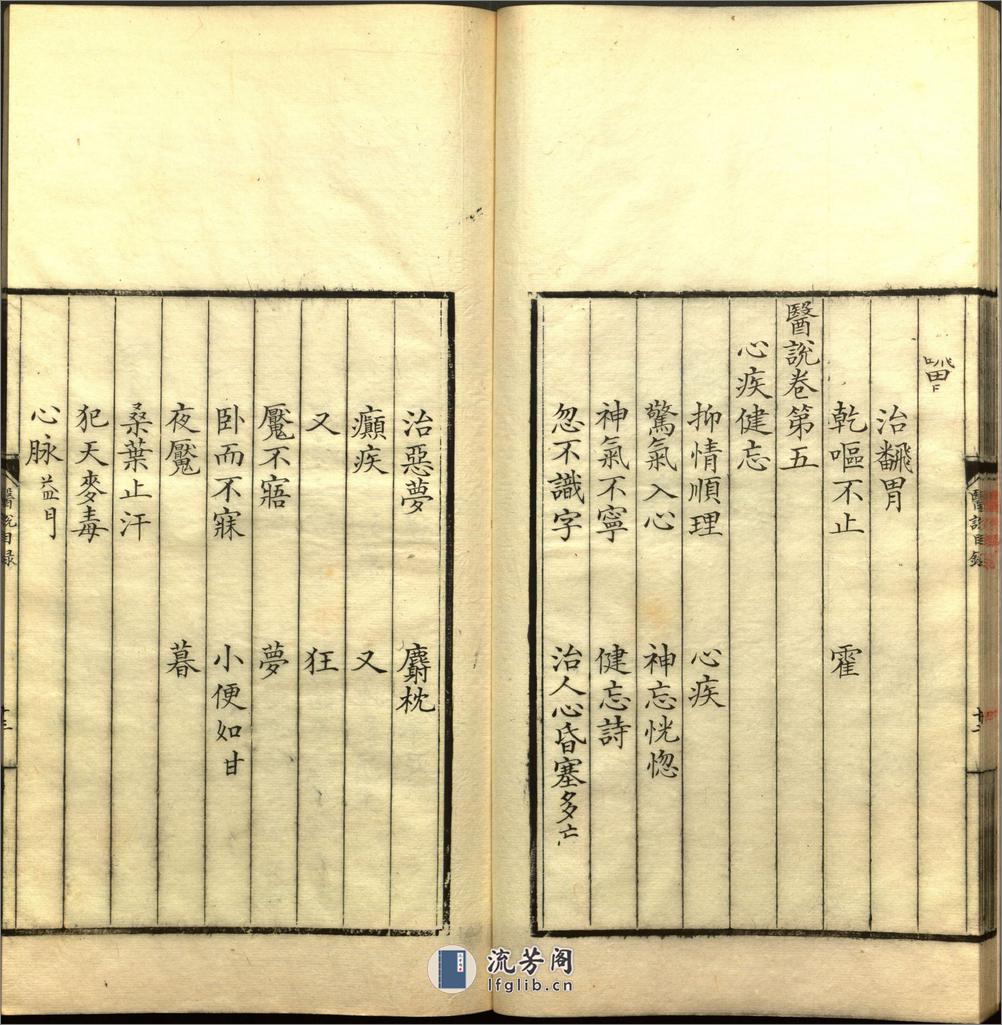 治飜胃
乾嘔不止 霍
醫說卷第五
心疾健忘
抑情順理 心疾
驚氣入心 神忘恍惚
神氣不寧 健忘詩
忽不識字 治人心昏塞多
治惡夢 麝枕
癲疾 又
又 狂
魘不寤 夢
卧而不寐 小便如甘
夜魘 暮
桑葉止汗
犯天麥毒
心脉
醫說目錄
醫說目録
十三
流芳阁
lfglib.cn